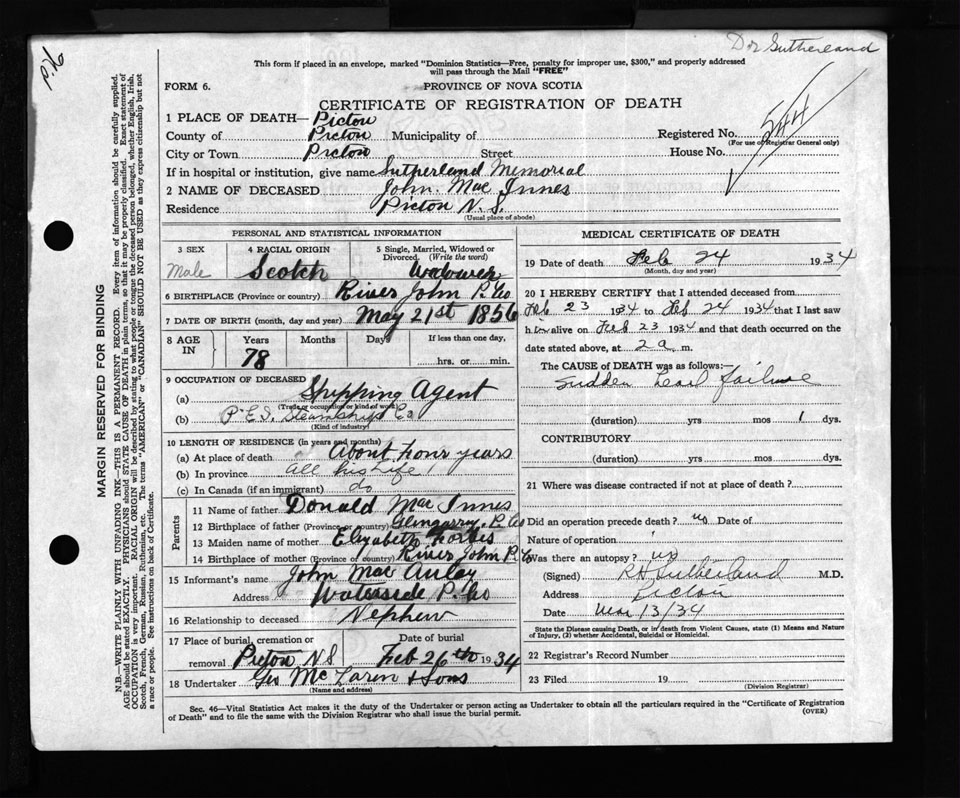 Dr Sutherland
This form if placed in an envelope, marked "Dominion Statistics—Free, penalty for improper use, $300," and properly addressed
will pass through the Mail "FREE"
FORM 6.
PROVINCE OF NOVA SCOTIA
CERTIFICATE OF REGISTRATION OF DEATH
1 PLACE OF DEATH— Pictou
County of Pictou Municipality of Registered No. 544
(For use of Registrar General only)
City or Town Pictou Street House No.
If in hospital or institution, give name Sutherland Memorial
2 NAME OF DECEASED John Mac Innes
Residence Pictou N.S.
(Usual place of abode)
PERSONAL AND STATISTICAL INFORMATION
3 SEX Male
4 RACIAL ORIGIN Scotch
5 Single, Married, Widowed or Divorced. (Write the word) Widower
6 BIRTHPLACE (Province or country) River John P. Co
7 DATE OF BIRTH (month, day and year) May 21st 1856
8 AGE IN Years 78 Months Days If less than one day, hrs. or min.
9 OCCUPATION OF DECEASED
(a) Shipping Agent
(Trade or occupation or kind of work)
(b) P.E.I. Steamship Co
(Kind of industry)
10 LENGTH OF RESIDENCE (in years and months)
(a) At place of death About four years
(b) In province all his life
(c) In Canada (if an immigrant) do
Parents
11 Name of father Donald Mac Innes
12 Birthplace of father (Province or country) Glengarry P. Co
13 Maiden name of mother Elizabeth Forbes
14 Birthplace of mother (Province or country) River John P. Co
15 Informant's name John Mac Aulay
Address Waterside P. Co
16 Relationship to deceased Nephew
17 Place of burial, cremation or removal Pictou N.S. Date of burial Feb 26th 1934
18 Undertaker Geo McLaren & Sons
(Name and address)
MEDICAL CERTIFICATE OF DEATH
19 Date of death Feb 24 1934
(Month, day and year)
20 I HEREBY CERTIFY that I attended deceased from
Feb 23 1934 to Feb 24 1934 that I last saw
him alive on Feb 23 1934 and that death occurred on the
date stated above, at 2 a m.
The CAUSE OF DEATH was as follows:—
Sudden failure
(duration) yrs mos 1 dys.
CONTRIBUTORY
(duration) yrs mos dys.
21 Where was disease contracted if not at place of death?
Did an operation precede death? no Date of
Nature of operation
Was there an autopsy? no
(Signed) Sutherland M.D.
Address Pictou
Date Mar 13/34
State the Disease causing Death, or in death from Violent Causes, state (1) Means and Nature
of Injury, (2) whether Accidental, Suicidal or Homicidal.
22 Registrar's Record Number
23 Filed 19
(Division Registrar)
Sec. 46—Vital Statistics Act makes it the duty of the Undertaker or person acting as Undertaker to obtain all the particulars required in the "Certificate of Registration
of Death" and to file the same with the Division Registrar who shall issue the burial permit. (OVER)
MARGIN RESERVED FOR BINDING
N.B.—WRITE PLAINLY WITH UNFADING INK—THIS IS A PERMANENT RECORD. Every item of information should be carefully supplied.
AGE should be stated EXACTLY. PHYSICIANS should STATE CAUSE OF DEATH in plain terms, so that it may be properly classified. Exact statement of
OCCUPATION is very important. RACIAL ORIGIN will be described by stating to what people or tongue the deceased person belonged, whether English, Irish,
Scotch, French, German, Russian, Ruthenian, etc. The terms "AMERICAN" or "CANADIAN" SHOULD NOT BE USED as they express citizenship but not
a race or people. See instructions on back of Certificate.